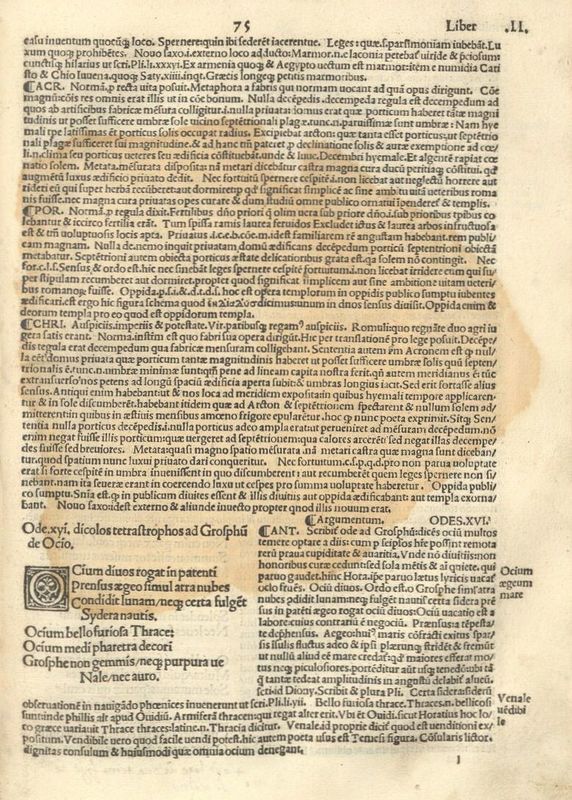 75 Liber .II.
casu inuentum quocūq; loco. Spernere: quin ibi sederēt iacerentue. Leges: quæ.s.parsimoniam iubebāt. Lu
xum quoq; prohibētes. Nouo saxo.i.externo loco ad ducto: Marmor.n. laconia petebaf uiride & p̄ciosum:
cunctisq; hilarius ut scri. Pli.li.xxxvi. Ex armenia quoq; & Aegypto uectum est marmor: itēm e numidia Cati
sto & Chio Iuuena. quoq; Saty.xiiii.inqt. Græcis longeq; petitis marmoribus.
¶ACR. Normā.p recta uita posuit. Metaphora a fabris qui normam uocant ad quā opus dirigunt. Cōe
magnū: cōis res omnis erat illis ut in cōe bonum. Nulla decēpedis. decempeda regula est decempedum ad
quos ab artificibus fabricæ mēsura colligitur.i.nulla priuata domus erat quæ porticum haberet tātæ magni
tudinis ut posset sufficere umbræ sole uicino septētrionali plagæ. tunc.n.paruissimæ sunt umbræ: Nam hye
mali tp̄e latissimas & porticus solis occupat radios. Excipiebat arcton: quæ tanta esset porticus: ut septētrio
nali plagæ sufficeret sui magnitudine.& ad hanc tm̄ pateret.p declinatione solis & autæ exemptione ad cœ
li.n.clima seu porticus ueteres seu ædificia cōstituebāt.unde & Iuue. Decembri hyemale. Et algentē rapiat cœ
natio solem. Metata.mēsurata disposita: nā metari dicebatur castra magna cura ducū peritiaq; cōstitui. qd
augmētū luxus ædificio priuato dedit. Nec fortuitū spernere cespitē.non licebat aut neglectū horrere aut
rideri eū qui super herbā recūberet: aut dormiret: p qd significat simplicē ac sine ambitu uitā ueteribus roma
nis fuisse. nec magna cura priuatas opes curare & dum studiū omne publico ornatui ipenderēt & templis.
¶POR. Normā.p regula dixit. Fertilibus dño priori q̄ olim uera sub priore dño.i.sub prioribus tpibus co
lebantur & iccirco fertilia erāt. Tum spissa ramis laurea feruidos Excludet ictus & laureas arbos infructuosa
est & tm̄ uoluptuosis locis apta. Priuatus .i.c.e.b.c.m.id est familiarem rē angustam habebant. rem publi
cam magnam. Nulla de. nemo inquit priuatam domū ædificans decēpedum porticū Septentrioni obiectā
metabatur. Septētrioni autem obiecta porticus æstate delicationibus grata est. qa solem nō contingit. Nec
for.c.s.f. Sensus & ordo est. hic nec sinebāt leges spernere cespitē fortuitum.i.non licebat irridere eum qui su/
per stipulam recumberet aut dormiret. propter quod significat simplicem aut sine ambitione uitam ueteri/
bus romanoꝝ fuisse. Oppida.p.s.i.&.d.t.d.s. hoc est opera templorum in oppidis publico sumptu iubentes
ædificari. est ergo hic figura schema quod dicimus unum in duos sensus diuisit. Oppida enim &
deorum templa pro eo quod est oppidorum templa.
¶CHRI. Auspiciis. imperiis & potestate. Vir. patribusq; regam⁹ auspiciis. Romuli quo regnāte duo agri iu
gera satis erant. Norma.instm̄ est quo fabri sua opera dirigūt. Hic per translationē pro lege posuit. Decēpe/
dis regula erat decempedum qua fabricæ mensuram colligebant. Sententia autem im Acronem est q nul/
la cēt domus priuata quæ porticum tantæ magnitudinis haberet ut posset sufficere umbræ solis quū septen/
trionalis ē. tunc.n.umbræ minimæ sunt
extransuerso nos petens ad longū spaciū ædificia aperta subit: & umbras longius iacit. Sed erit fortasse alius
sensus. Antiqui enim habebantur & nos loca ad meridiem exposita in quibus hyemali tempore applicaren/
tur & in sole discumberēt. habebant itidem quæ ad Arcton & septētrionem spectarent & nullum solem ad/
mitterent in quibus in æstiuis mensibus amœno frigore epularētur. hoc qn nunc poeta exprimit. Sitq; Sen/
tentia nulla porticus decēpedis.i.nulla porticus adeo ampla erat ut perueniret ad mēsuram decēpedum.nō
enim negat fuisse illis porticum: quæ uergeret ad septētrionem: qua calores arcerēt sed negat illas decempe/
des fuisse sed breuiores. Metata: quasi magno spatio mēsurata .nā metari castra quæ magna sunt dicebane
tur. quod spatium nunc luxui priuato dari conqueritur. Nec fortuitum.c.s.p.q.d. pro non parua uoluptate
erat si forte cespitē in umbra inuenissent in quo discumberent: aut recumberēt quem leges spernere non si/
nebant. nam ita seueræ erant in coercendo luxu ut cespes pro summa uoluptate haberetur. Oppida publi/
co sumptu. Snia est. q; in publicum diuites essent & illis diuitiis aut oppida ædificabant: aut templa exorna/
bant. Nouo saxo: id est externo & aliunde inuecto propter quod illis nouum erat.
¶Argumentum. ODES.XVI.
Ode.xvi. dicolos tetrastrophos ad Grosphū
de Ocio.
OCium diuos rogat in patenti
Prensus ægeo simul atra nubes
Condidit lunam/neq; certa fulgēt
Sydera nautis.
Ocium bello furiosa Thrace:
Ocium medi pharetra decori
Grosphe non gemmis/neq; purpura ue
Nale/nec auro.
¶ANT. Scribit ode ad Grosphū: dicēs ociū multos
temere optare a diis: cum p seipsos hīs possint remota
rerū praua cupiditate & auaritia. Vnde nō diuitiis: non
honoribus curæ cedunt: sed sola mētis & ai quiete. qui
paruo gaudet. hinc Hora. ipse paruo lætus lyricis uacat
ocio fruēs. Ociū diuos. Ordo est. o Grosphe simul atra
nubes pdidit lunam: neq; fulgēt nautis certa sidera prē
sus in patēti ægeo rogat ociū diuos: Ociū uacatio est a
labore: cuius contrariū ē negociū. Præensus: a tēpesta/
te dephensus. Aegeo: hui⁹ maris cōfracti exitus spar/
sis isulis fluctus adeo & ipsi plærunq; stridēt & fremūt
ut nullū aliud eē mare credaf: qd maiores efferat mo/
tus neq; piculosiores. portēditur aūt usq; tenedū: ubi tā
q tantæ tedeat amplitudinis in angustū delabif alueū.
scri id Diony. Scribit & plura Pli. Certa sidera: siderū
obseruationē in nauigādo phœnices inuenerunt ut scri. Pli.li.vii. Bello furiosa thrace. Thraces.n. bellicosi
sunt unde phillis ait apud Ouidiū. Armiferā thracen: qui regat alter erit. Vbi & Ouidi. sicut Horatius hoc lo/
co græce uariauit Thrace thraces: latine.n. Thracia dicitur. Venale.id proprie dicif quod est uenditioni ex/
positum. Vendibile uero quod facile uendi potest. hic autem poeta usus est Temesis figura. Cōsularis lictor.
dignitas consulum & huiusmodi quæ omnia ocium denegant.
Ocium
ægeum
mare
Venale
uēdibi
le